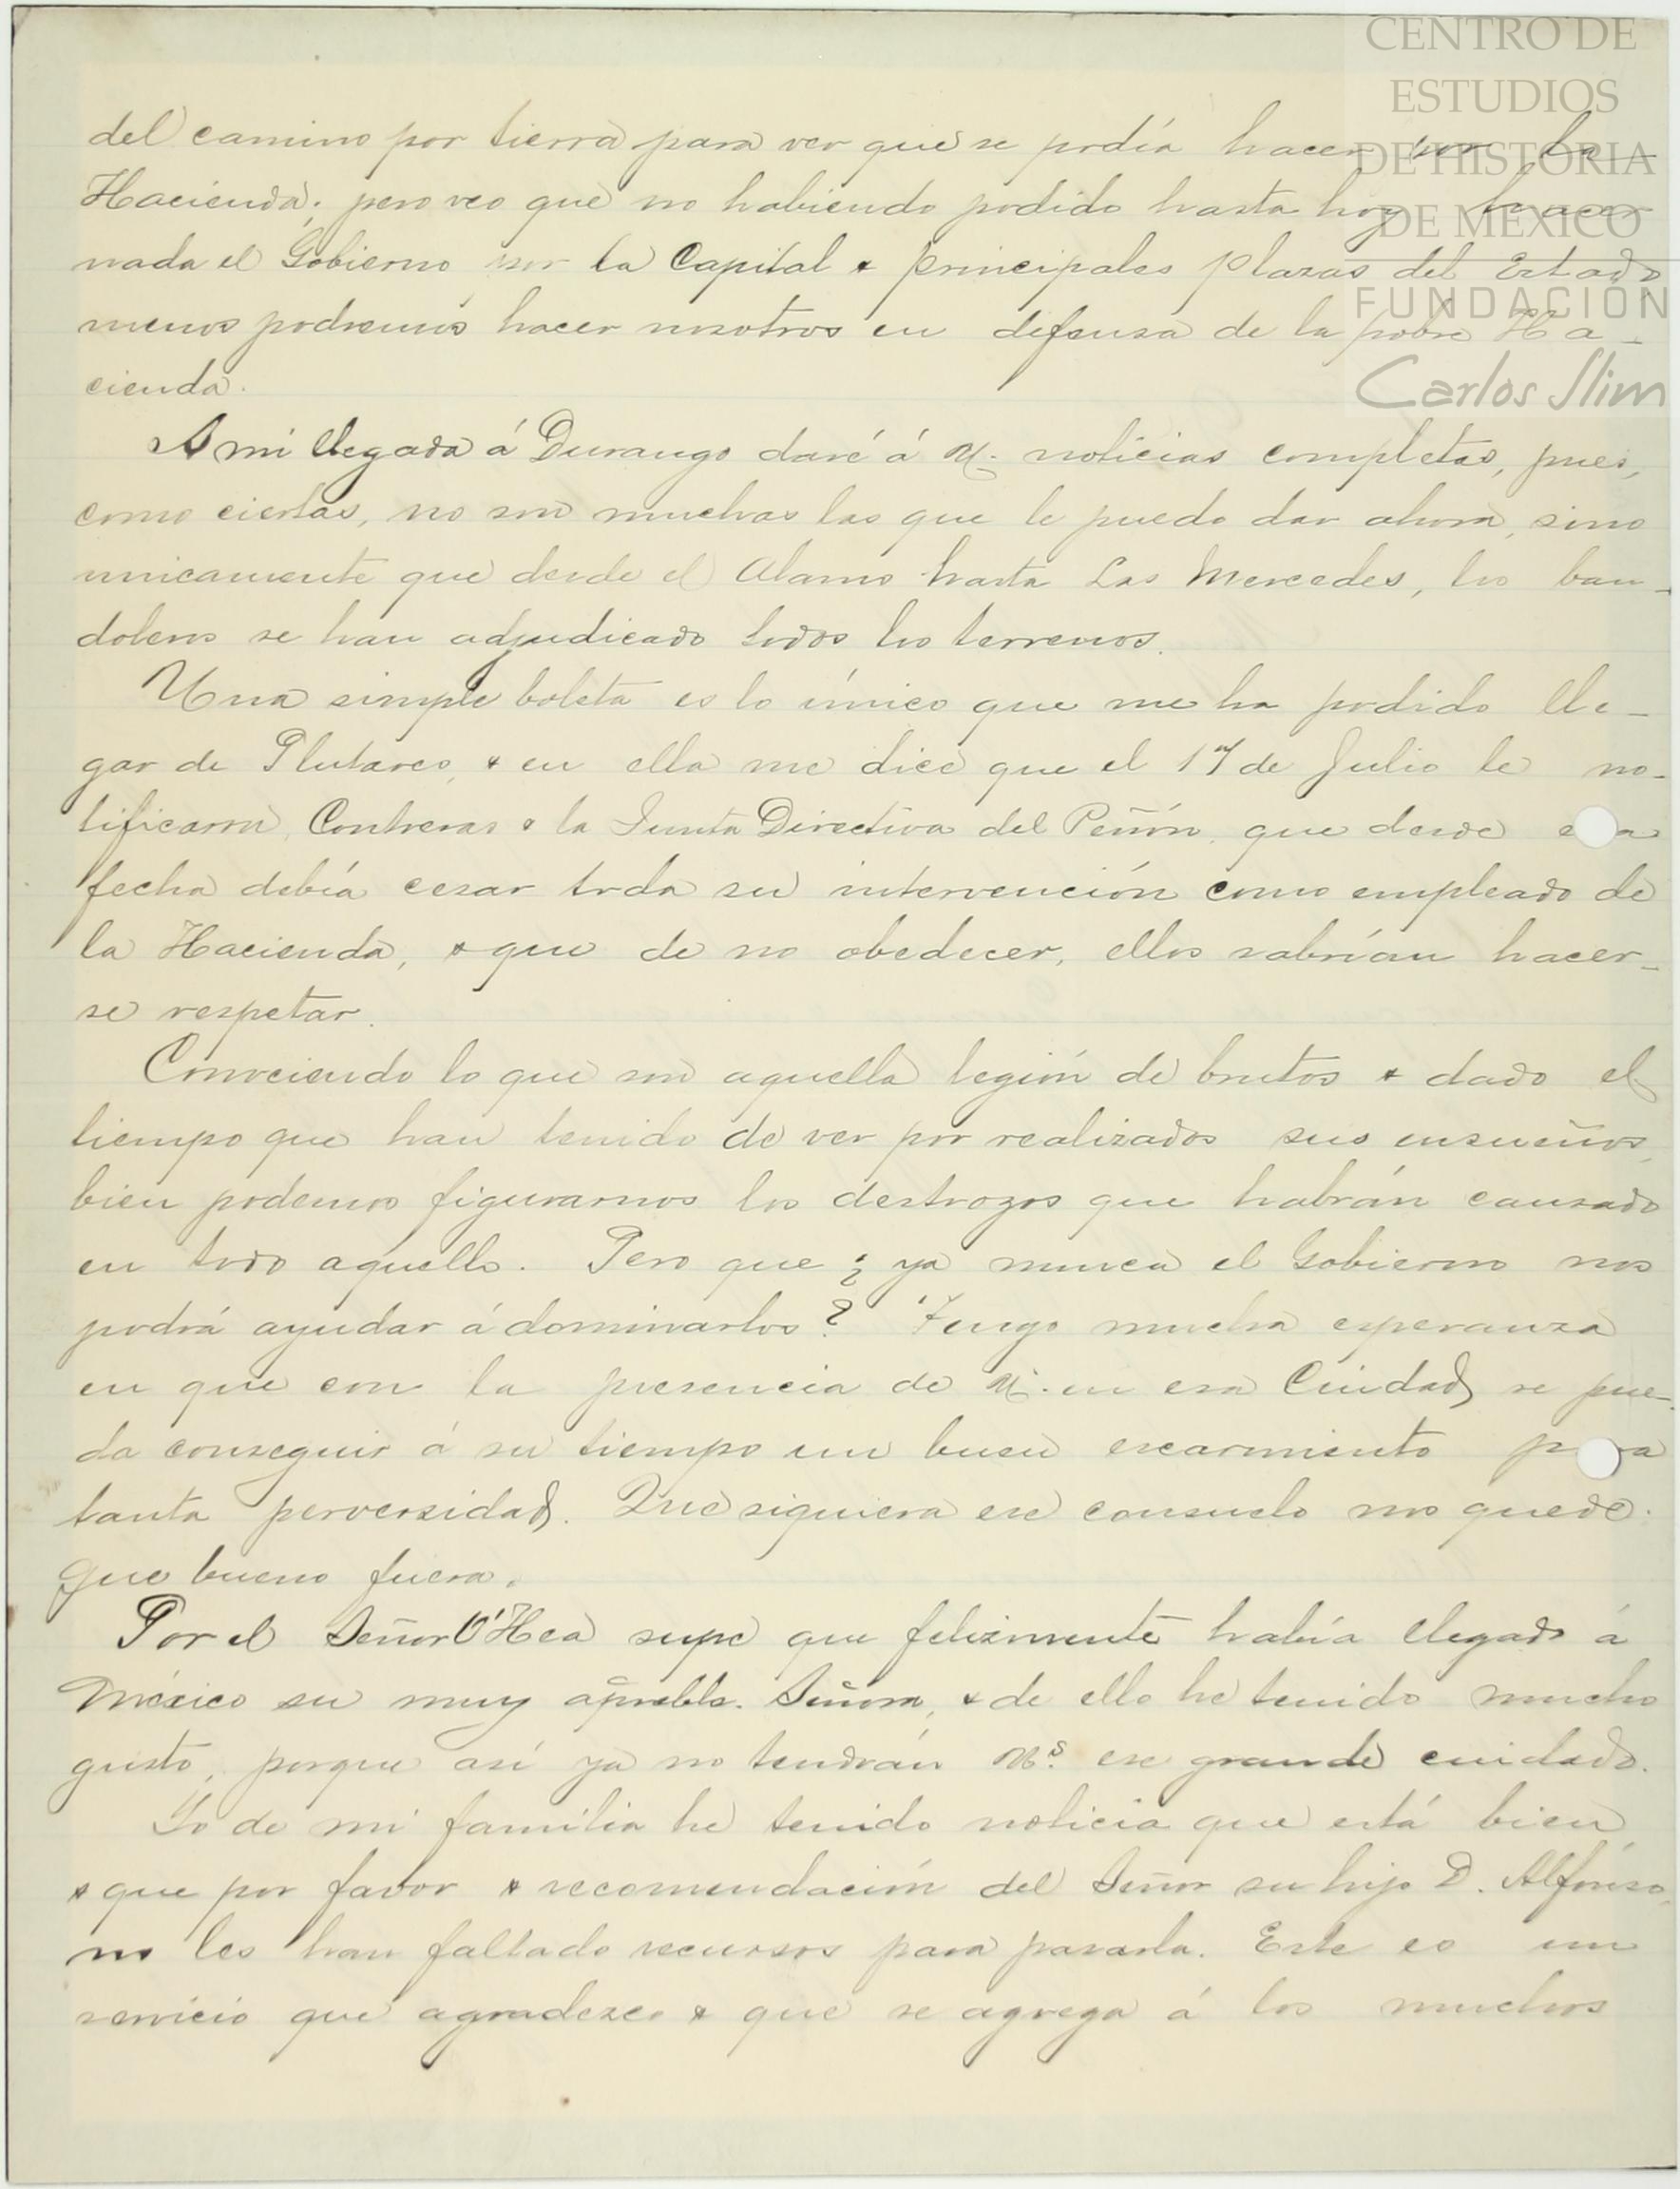 CENTRO DE
ESTUDIOS
DE HISTORIA
DE MEXICO
FUNDACIÓN
Carlos Slim
del camino por tierra para ver que se podía hacer por la
Hacienda; pero veo que no habiendo podido hasta hoy hacer
nada el Gobierno por la Capital & principales plazas del Estado
menos podremos hacer nosotros en defensa de la pobre Ha-
cienda.
A mi llegada á Durango daré á U. noticias completas, pues,
como ciertas, no son muchas las que le puedo dar ahora, sino
unicamente que desde el Alamo hasta Las Mercedes, los ban-
doleros se han adjudicado todos los terrenos.
Una simple boleta es lo único que me ha podido lle-
gar de Plutarco, & en ella me dice que el 17 de Julio le no-
tificaron, Contreras & la Junta Directiva del Peñón, que desde e a
fecha debía cesar toda su intervención como empleado de
la Hacienda, & que de no obedecer, ellos sabrían hacer-
se respetar.
Conociendo lo que son aquella legión de brutos & dado el
tiempo que han tenido de ver por realizados sus ensueños,
bien podemos figurarnos los destrozos que habrán causado
en todo aquello. Pero que ¿ ya nunca el Gobierno nos
podrá ayudar á dominarlos? Tengo mucha esperanza
en que con la presencia de U. en esa Ciudad, se pue-
da conseguir á su tiempo un buen escarmiento p ra
tanta perversidad. Que siquiera ese consuelo nos quede.
que bueno fuera.
Por el Señor O'Hea supe que felizmente había llegado á
México su muy apreble. Señora, & de ello he tenido mucho
gusto, porque así ya no tendrán Us. ese grande cuidado.
Yo de mi familia he tenido noticia que está bien,
& que por favor & recomendación del Señor su hijo D. Alfonso,
no les han faltado recursos para pasarla. Este es un
servicio que agradezco & que se agrega á los muchos